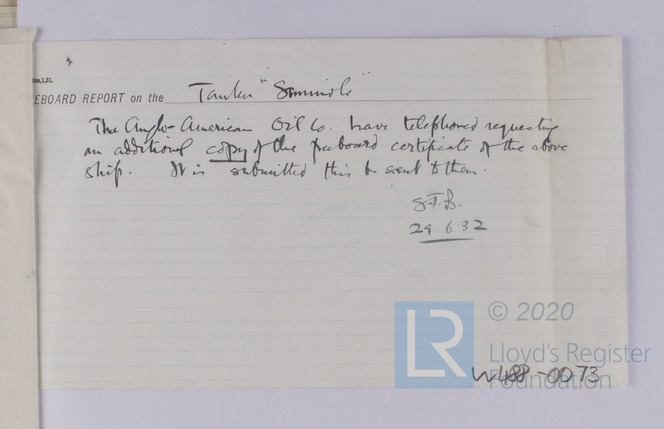 EEBOARD REPORT on the Tanker "Seminole"
The Anglo-American Oil Co. have telephoned requesting
an additional copy of the freeboard certificate of the above
ship. It is submitted this be sent to them.
S.F.B.
29.6.32
© 2020
LR
Lloyd's Register
Foundation
W488-0073